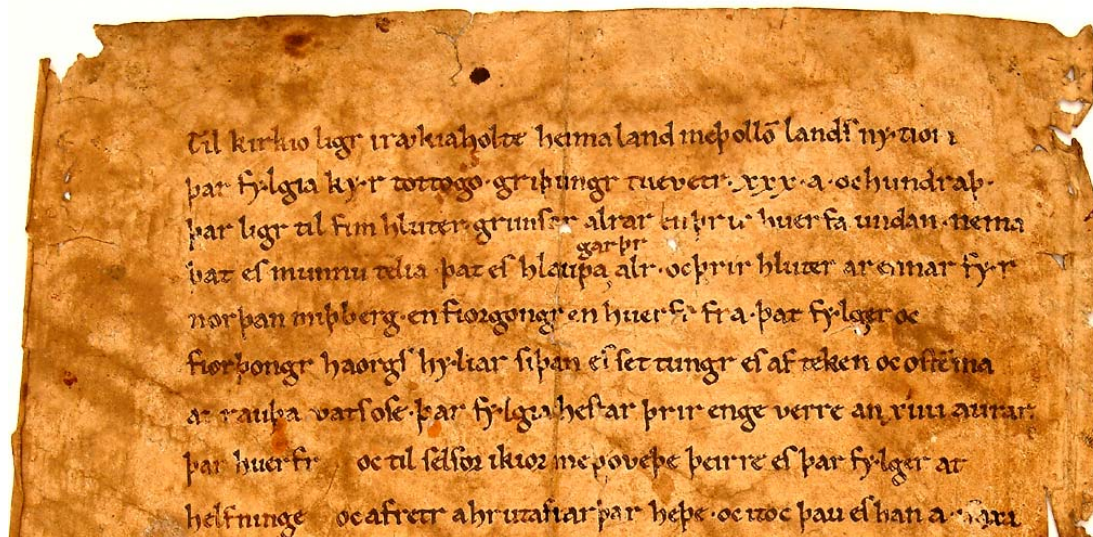 Til kirkio ligr i rækiaholte heimaland meþ ollō landſ nytiom
þar fylgia kyr tottogo · griþungr tuevetr · xxx · a · oc hundraþ ·
þar ligr til fim hluter grimsar alrar en þrir huerfa undan · nema
þat es munnu telia · þat es hlaupa
garþr
alr · oc þrir hluter arennar fyr
norþan miþberg · en fiorþongr en huerfr fra · þar fylger oc
fiorþongr haorgſ hyliar siþan es settungr es af teken oc ostēma
at rauþa vats ose · þar fylgia hestar þrir enge verre an xiiii aurar
þar huerfr oc til selſ for i kior meþ veþe þeirre es þar fylger at
helfninge oc afretr a hrutafiarþar heþe · oc itoc þau es han a